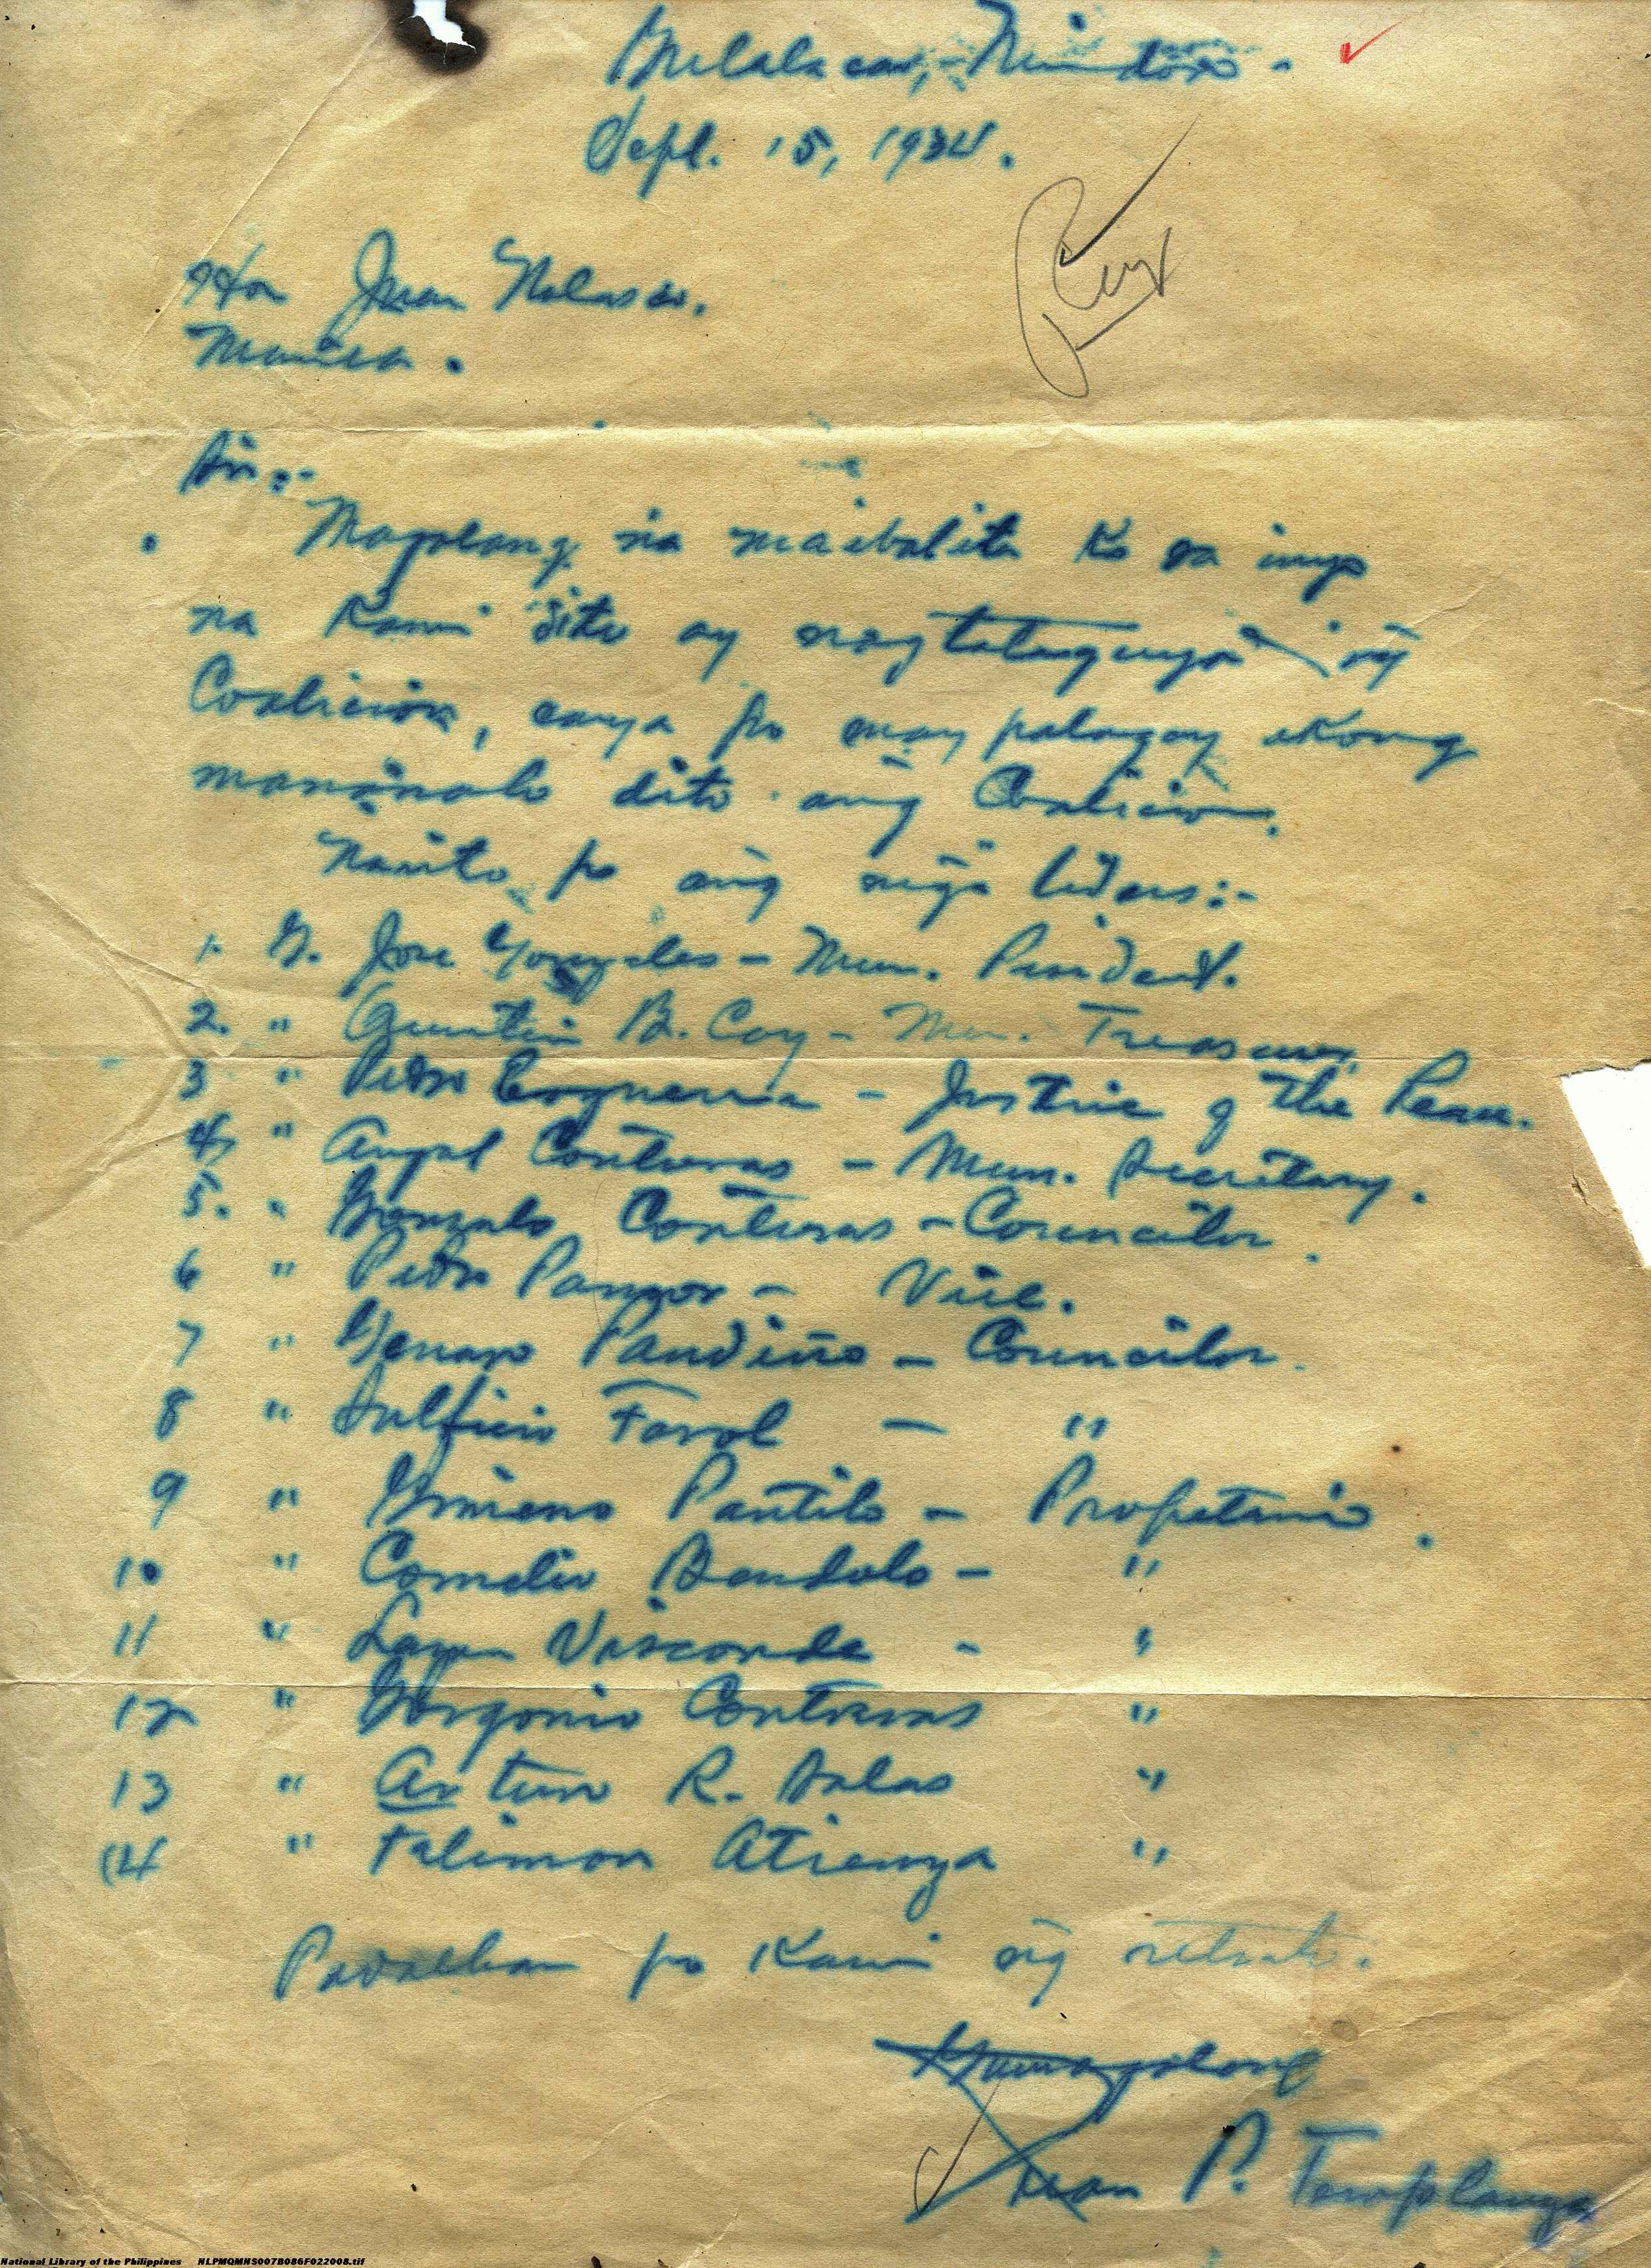 Bulalacao, Mindoro -
Sept. 15, 1934.
Hon Juan Nolasco.
Manila.
Sir:-
Magalang na maibalita Ko sa inyo
na Kami dito ay nagtataguyod ng̃
Coalicion, caya po may palagay akong
mananalo dito ang̃ Coalicion.
Narito po ang̃ mg̃a liders:-
1. G. Jose Gonzales - Mun. President.
2. " Quintin B. Cay - Mun. Treasurer
3 " Pedro - Justice of the Peace.
4, " Angel Contreras - Mun. Secretary.
5. " Gonzalo Contreras - Councilor.
6 " Pedro - Vice.
7 " Genaro Pandiño - Councilor.
8 " Sulficio Farol - "
9 " Gimeno Pantilo - Propetario.
10 " Cornelio Bandolo - "
11 " Visconde - "
12 " Gorgonio Contreras "
13 " Arturo R. Salas "
14 " Falimon Atienza "
Padalhan po Kami ng̃ retrato.
Gumagalang
Juan P. Templanza
National Library of the Philippines NLPMQMNS007B086F022008.tif